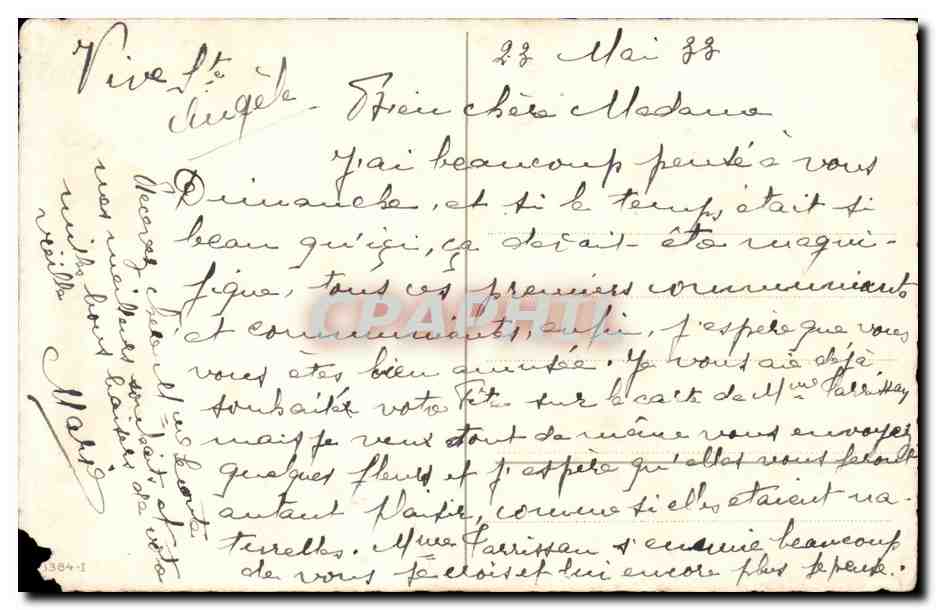 Vive Ste
Angèle
22 Mai 33
Bien chère Madame
J'ai beaucoup pensé à vous
Dimanche, et si le temps était si
beau qu'ici, ça devait être magni-
fique, tous ces premiers communiants
et communiantes, enfin, j'espère que vous
vous êtes bien amusée. Je vous ai déjà
souhaité votre Fête sur la carte de Mme Parrissau
mais je veux tout de même vous envoyer
quelques fleurs et j'espère qu'elles vous feront
autant plaisir, comme si elles étaient na-
turelles. Mme Parrissau s'ennuie beaucoup
de vous je crois et lui encore plus je pense.
Recevez chère Mme
mes meilleurs souhaits et
mille bons baisers de votre
vieille
Marie
CPAPHIL
1384-I